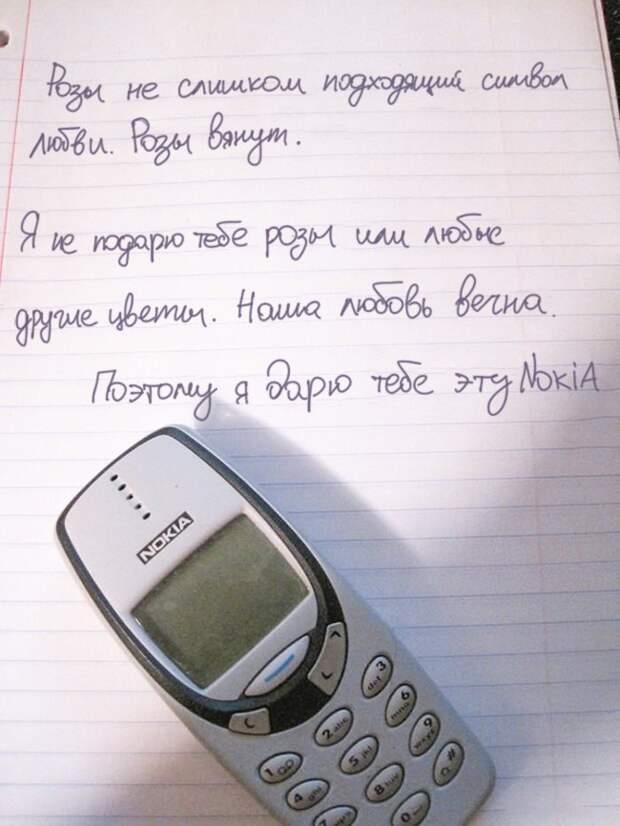 Розы не слишком подходящий символ
любви. Розы вянут.
Я не подарю тебе розы или любые
другие цветы. Наша любовь вечна.
Поэтому я дарю тебе эту NokiA
NOKIA
1 QO
2 abc
3 def
4 ghi
5 jkl
6 mno
7
8 tuv
9 wxyz
0
#